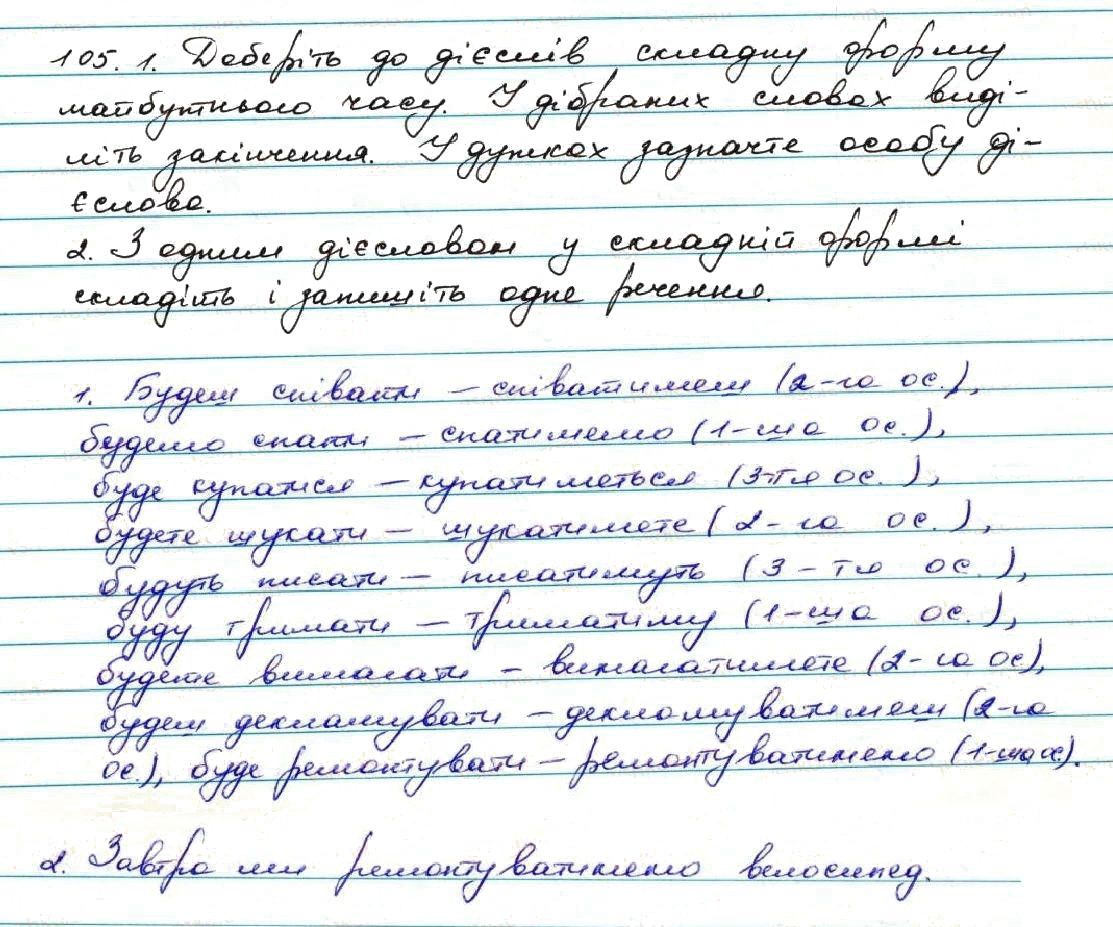 105. 1. Доберіть до дієслів складну форму
майбутнього часу. У дібраних словах виді-
літь закінчення. У дужках зазначте особу ді-
єслова.
2. З одним дієсловом у складній формі
складіть і запишіть одне речення.
1. Будеш співати – співатимеш (2-га ос.),
будемо спати – спатимемо (1-ша ос.),
буде купатися – купатиметься (3-тя ос.),
будете шукати – шукатимете (2-га ос.),
будуть писати – писатимуть (3-тя ос.),
буду тримати – триматиму (1-ша ос.),
будете вимагати – вимагатимете (2-га ос),
будеш декламувати – декламуватимеш (2-га
ос.), буде ремонтувати – ремонтуватимемо (1-ша ос).
2. Завтра ми ремонтуватимемо велосипед.